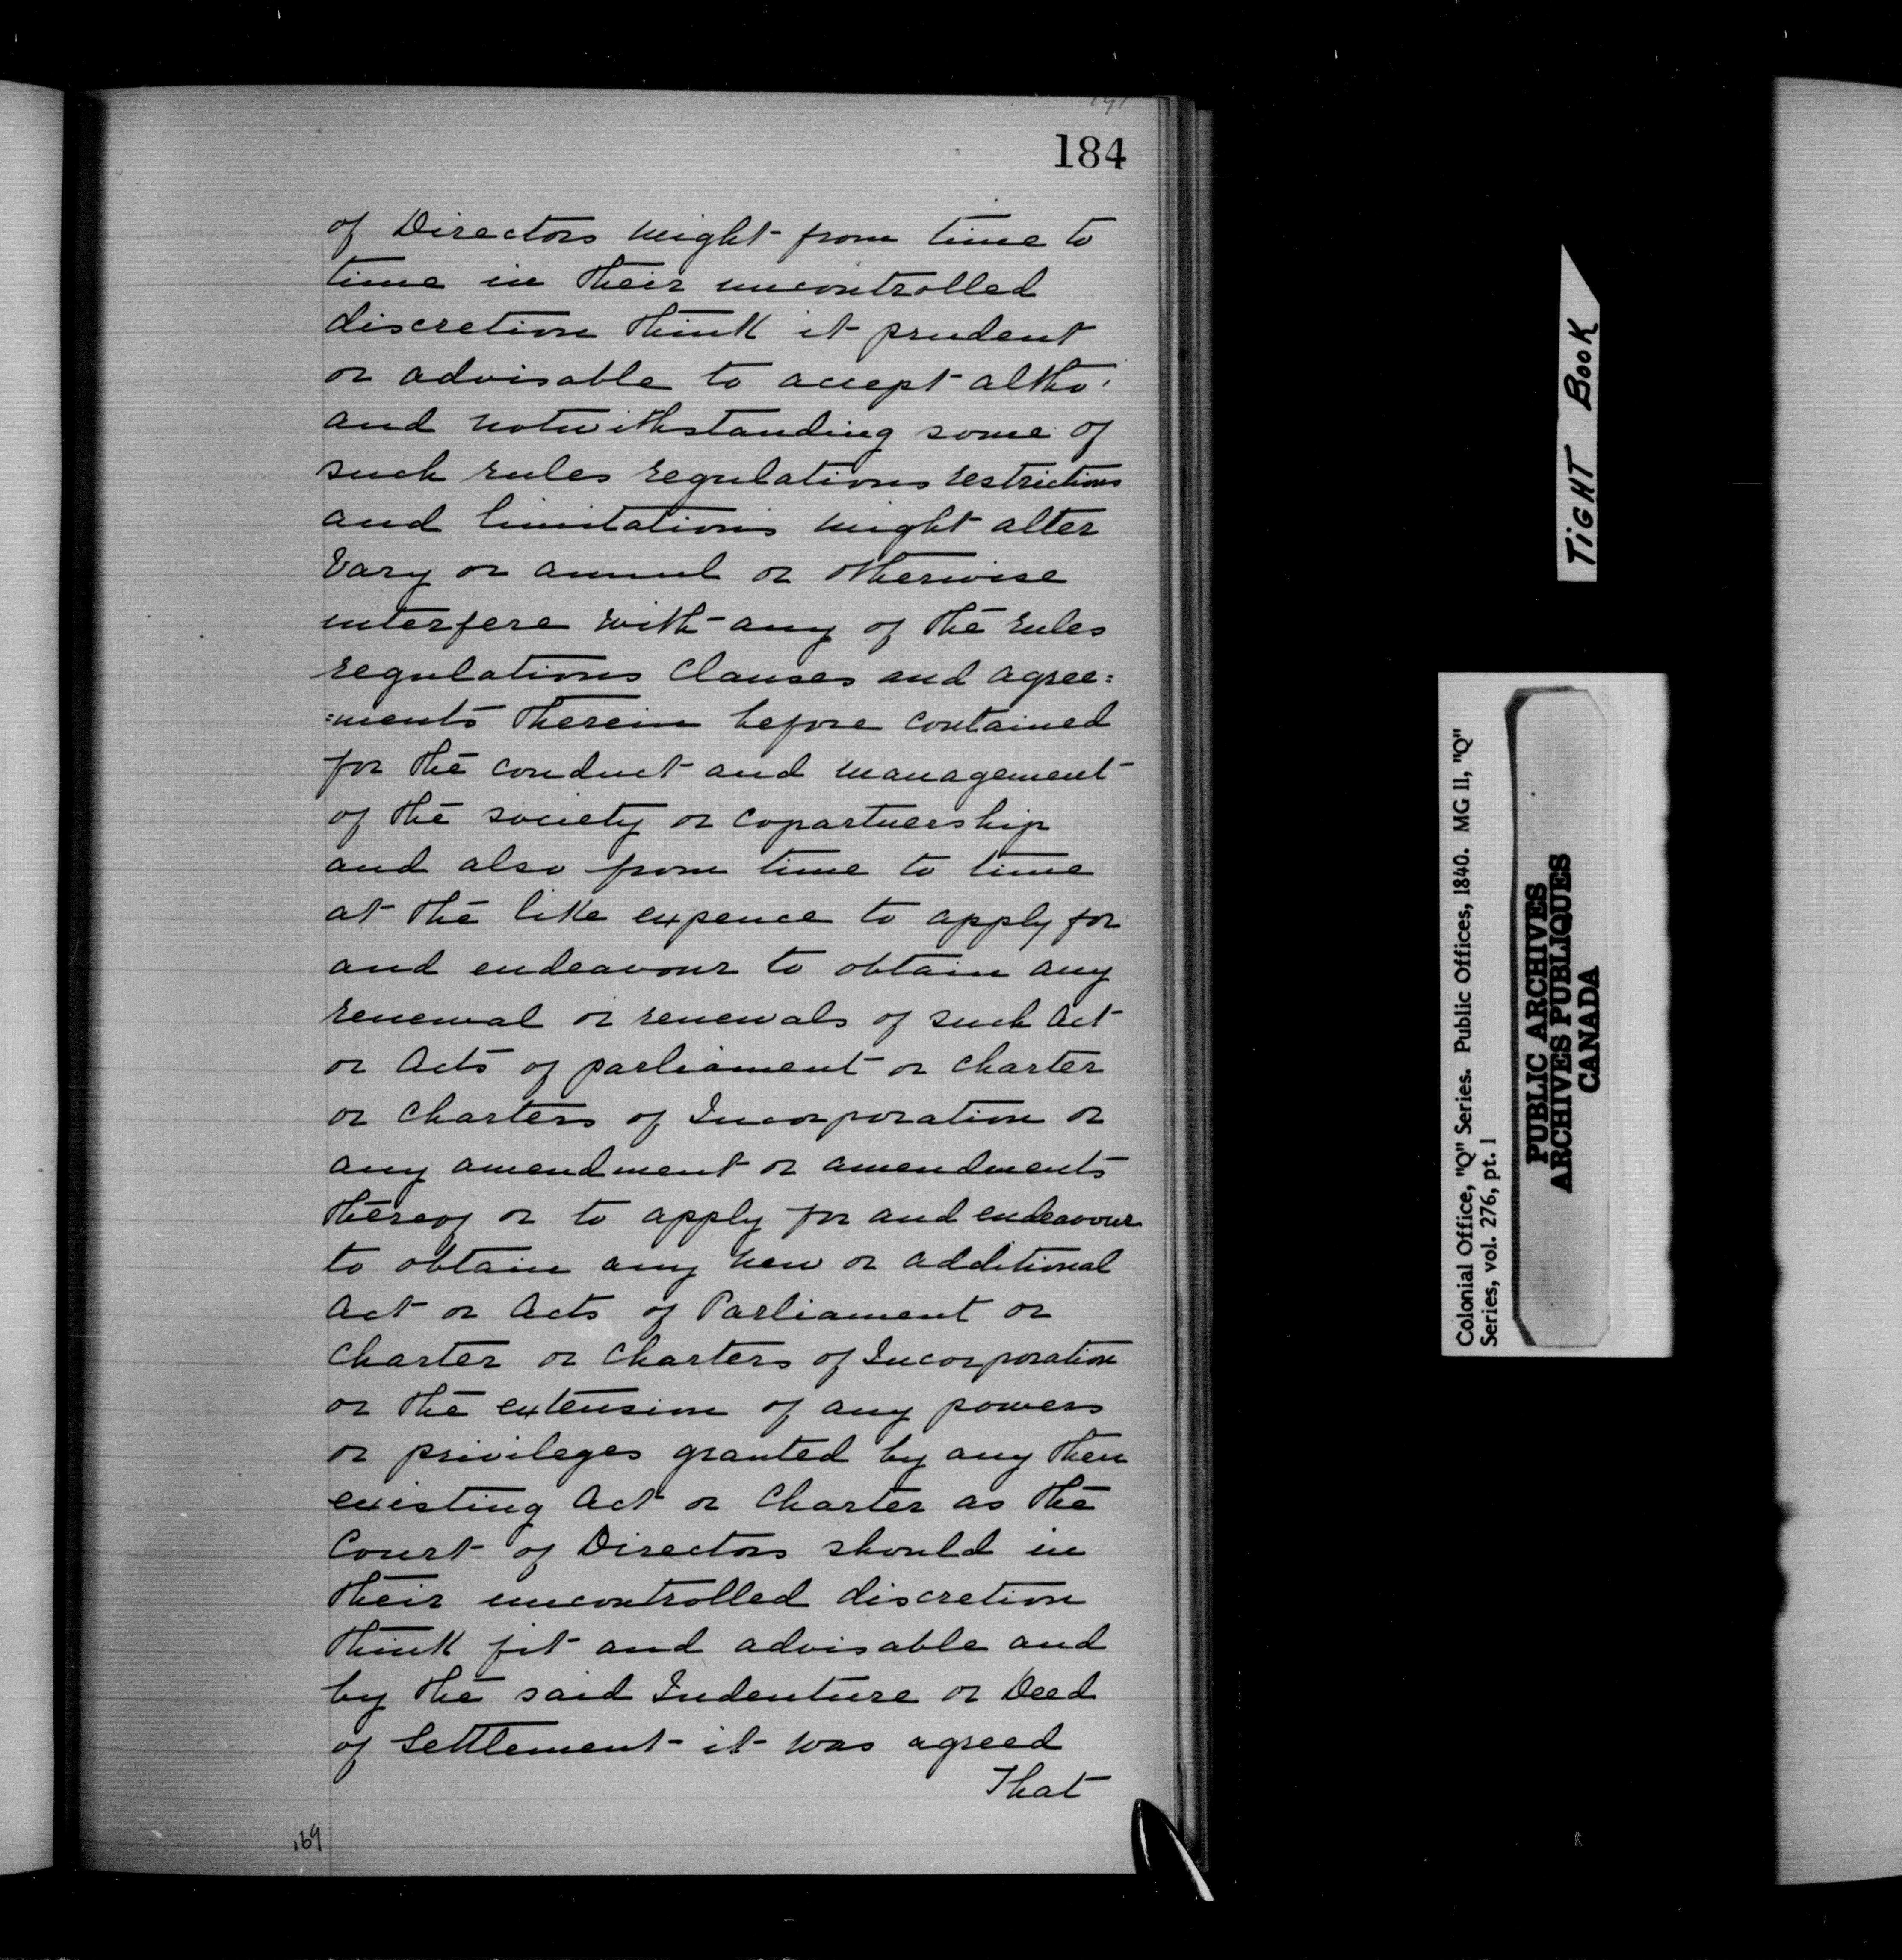 184
of Directors might from time to
time in their uncontrolled
discretion think it prudent
or advisable to accept altho'
and notwithstanding some of
such rules regulations restrictions
and limitations might alter
vary or annul or otherwise
interfere with any of the rules
regulations clauses and agree=
=ments therein before contained
for the conduct and management
of the society or copartnership
and also from time to time
at the like expence to apply for
and endeavour to obtain any
renewal or renewals of such Act
or Acts of parliament or charter
or charters of Incorporation or
any amendment or amendments
thereof or to apply for and endeavour
to obtain any new or additional
Act or Acts of Parliament or
Charter or Charters of Incorporation
or the extension of any powers
or privileges granted by any then
existing Act or Charter as the
Court of Directors should in
their uncontrolled discretion
think fit and advisable and
by the said Indenture or Deed
of Settlement it was agreed
That
169
TIGHT BOOK
Colonial Office, "Q" Series. Public Offices, 1840. MG 11, "Q"
Series, vol. 276, pt. 1
PUBLIC ARCHIVES
ARCHIVES PUBLIQUES
CANADA